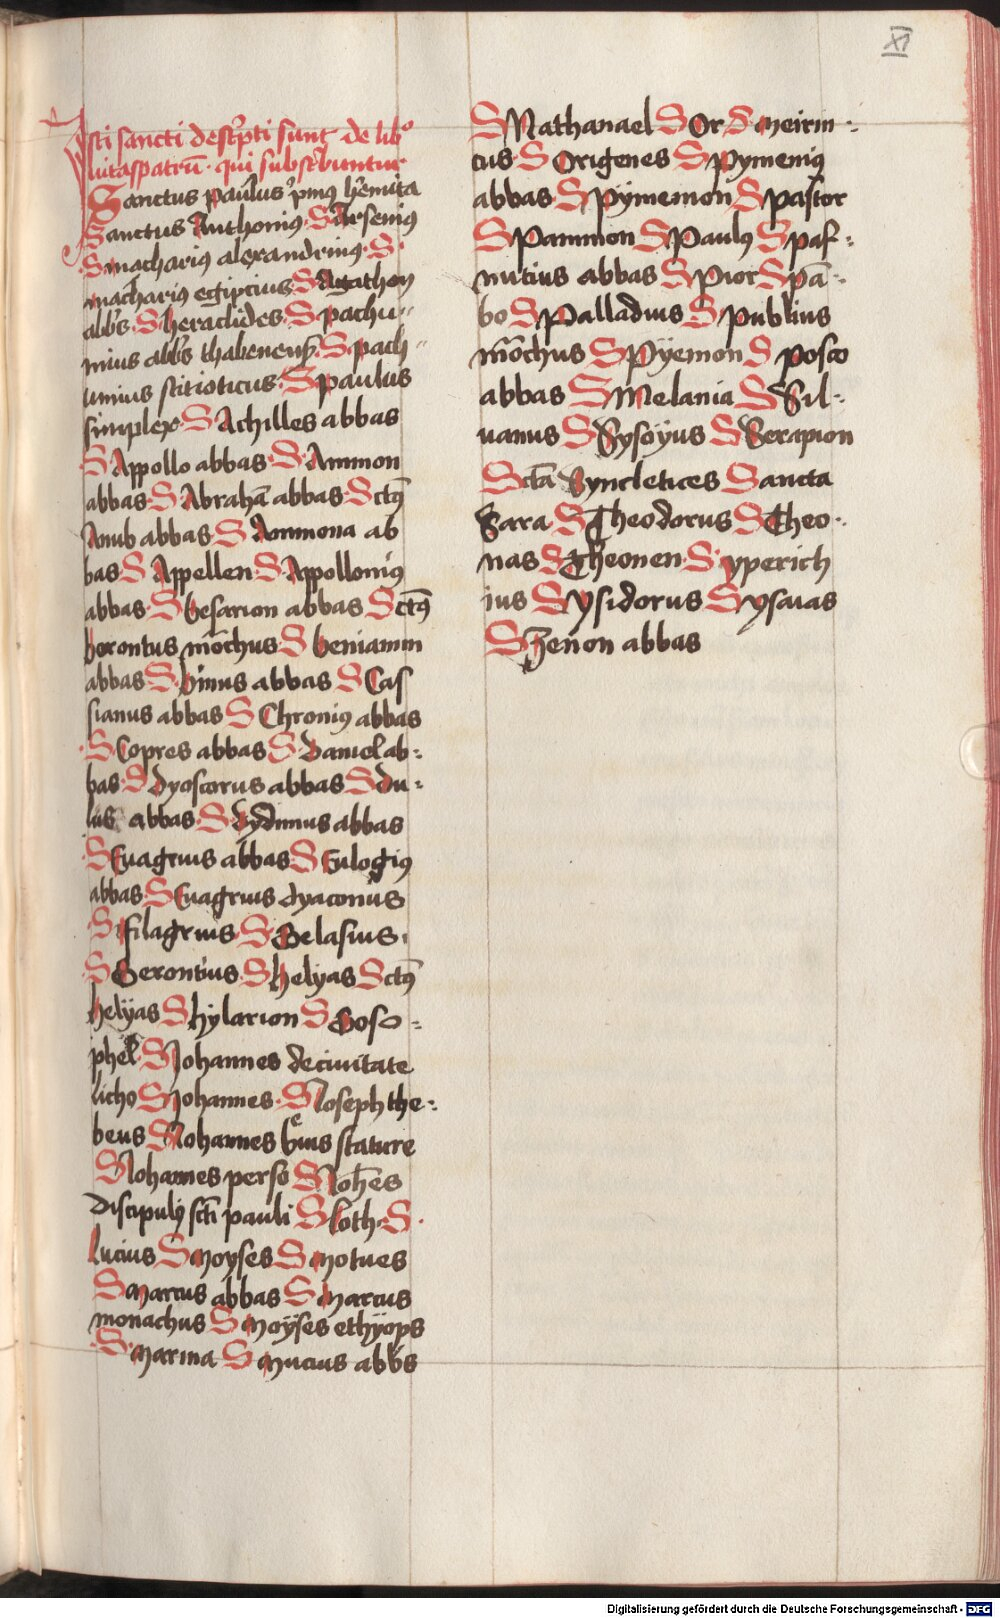 XI
Isti sancti descpti sunt de libo
vitaspatrū · qui subscbuntur
Sanctus paulus pmꝰ hemita
Sanctus Anthoniꝰ · S Arseniꝰ
S machariꝰ alexandrinꝰ · S
machariꝰ egipcius S Agathon
abbs · S heraclides · S pachu
mius abbs thabenens S · pach
umius scitioticus · S paulus
simplex · S Achilles abbas
S Appollo abbas · S · Ammon
abbas · S Abrahā abbas · Sctꝰ
Anub abbas · S Ammona ab
bas · S Appellen · S · Appolloniꝰ
abbas · S besarion abbas Sctꝰ
borontus mōchus · S beniamin
abbas · S · binus abbas S Cas
sianus abbas S Chroniꝰ abbas
S Copres abbas S · daniel ab:
bas · S dyoscorus abbas S du:
lus abbas · S dydimus abbas
S Euagrius abbas S Eulogiꝰ
abbas · S Euagrius dyaconus
S filagrius · S Gelasius ·
S Gerontius · S helyas Sctꝰ
helyas S hylarion S Goso:
phel · S Johannes de ciuitate
licho S Johannes · S Joseph the:
beus S Johannes beuis stature
S Johannes perso S Johēs
discipulꝰ scti pauli S loth · S ·
lucius S moyses S motues
S marcus abbas S marcus
monachus S moyses ethyops
S · marina S mucius abbs
S Nathanael S Or S meirin ·
cus · S Origenes S pymeniꝰ
abbas · S pymemon S pastor
S pammon S Paulꝰ S paf:
nutius abbas S Pior S pā:
bo S Palladius S · publius
mōchus S Pyemon S posco
abbas S Melania S Sil:
uanus S Sysoyus S Serapion
Sctā Syncletices Sancta
Sara S Theodorus S Theo:
nas S Theonen · S · yperich
ius S ysidorus S ysaias
S Zenon abbas
Digitalisierung gefördert durch die Deutsche Forschungsgemeinschaft - DFG